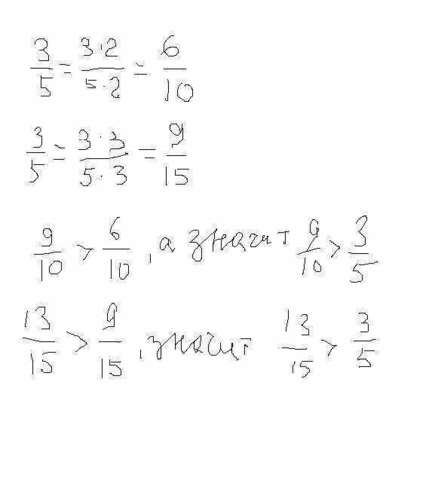 3/5 = 3·2/5·2 = 6/10
3/5 = 3·3/5·3 = 9/15
9/10 > 6/10, а значит 9/10 > 3/5
13/15 > 9/15, значит 13/15 > 3/5